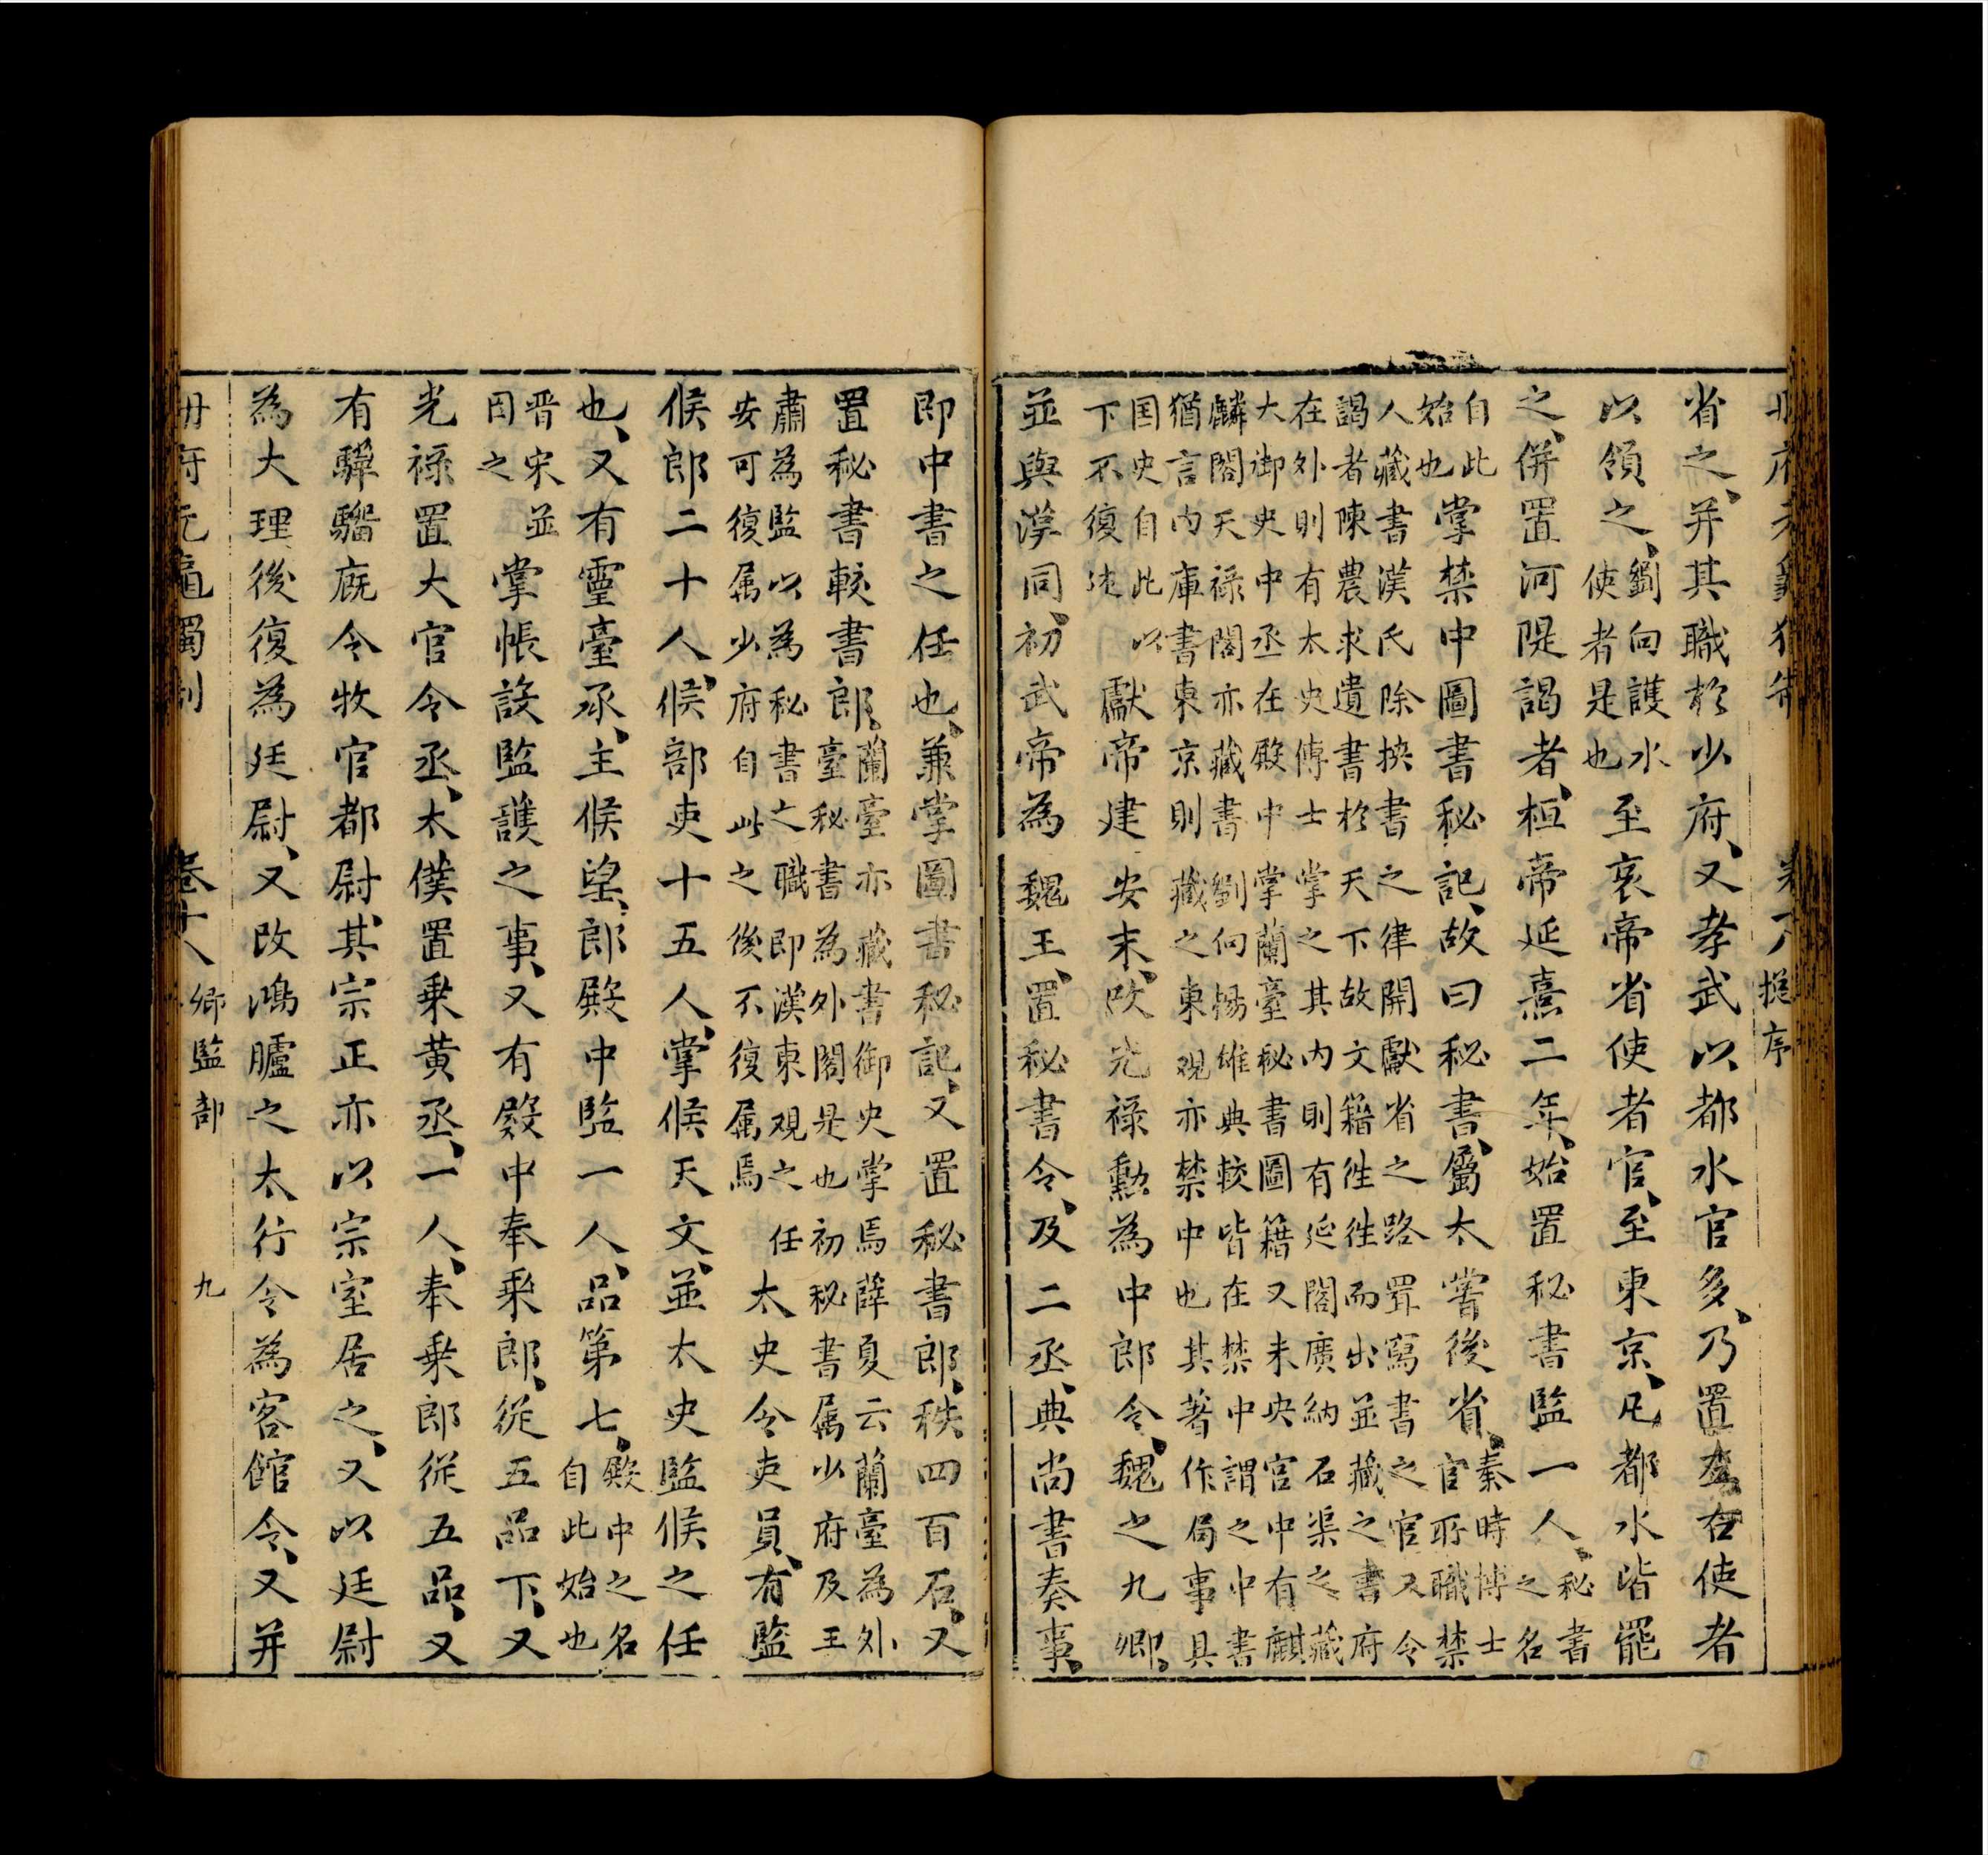 省之、并其職於少府、又孝武以都水官多、乃置左右使者
以領之、劉向護水使者是也至哀帝省使者官、至東京、凡都水皆罷
之、併置河隄謁者、桓帝延熹二年、始置秘書監一人、秘書之名
自此始也掌禁中圖書秘記、故曰秘書、屬太嘗後省、秦時博士官所職禁
人藏書漢氏除挾書之律開獻省之路置寫書之官又令
謁者陳農求遺書於天下故文籍往往而出並藏之書府
在外則有太史傳士掌之其內則有延閣廣納石渠之藏
大御史中丞在殿中掌蘭臺秘書圖籍又未央宮中有麒
麟閣天祿閣亦藏書劉向楊雄典較皆在禁中謂之中書
猶言內庫書東京則藏之東觀亦禁中也其著作局事具
国史自此以下不復述獻帝建安末、改光祿勳為中郎令、魏之九卿、
並與漢同、初武帝為魏王、置秘書令、及二丞、典尚書奏事、
即中書之任也、兼掌圖書秘記、又置秘書郎、秩四百石、又
置秘書較書郎、蘭臺亦藏書御史掌焉薛夏云蘭臺為外臺秘書為外閣是也初秘書属少府及王
肅為監以為秘書之職即漢東觀之任安可復属少府自此之後不復属焉太史令吏員、有監
候郎二十人、候部吏十五人、掌候天文、並太史監候之任
也、又有靈臺丞、主候望、郎殿中監一人、品第七、殿中之名自此始也
晋宋並因之掌帳設監護之事、又有殿中奉乘郎、從五品下、又
光祿置大官令丞、太僕置乗黄丞、一人、奉乗郎從五品、又
有驊騮廐令牧官都尉、其宗正亦以宗室居之、又以廷尉
為大理、後復為廷尉、又改鴻臚之太行令為客館令、又并
冊府元龜獨制 卷十八 卿監部 九